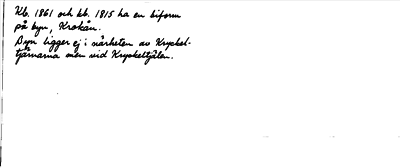 Kb. 1861 och kb. 1815 ha en biform
på byn, Krokån.
Byn ligger ej i närheten av Kryckel-
tjärnarna men vid Kryckeltjålen.